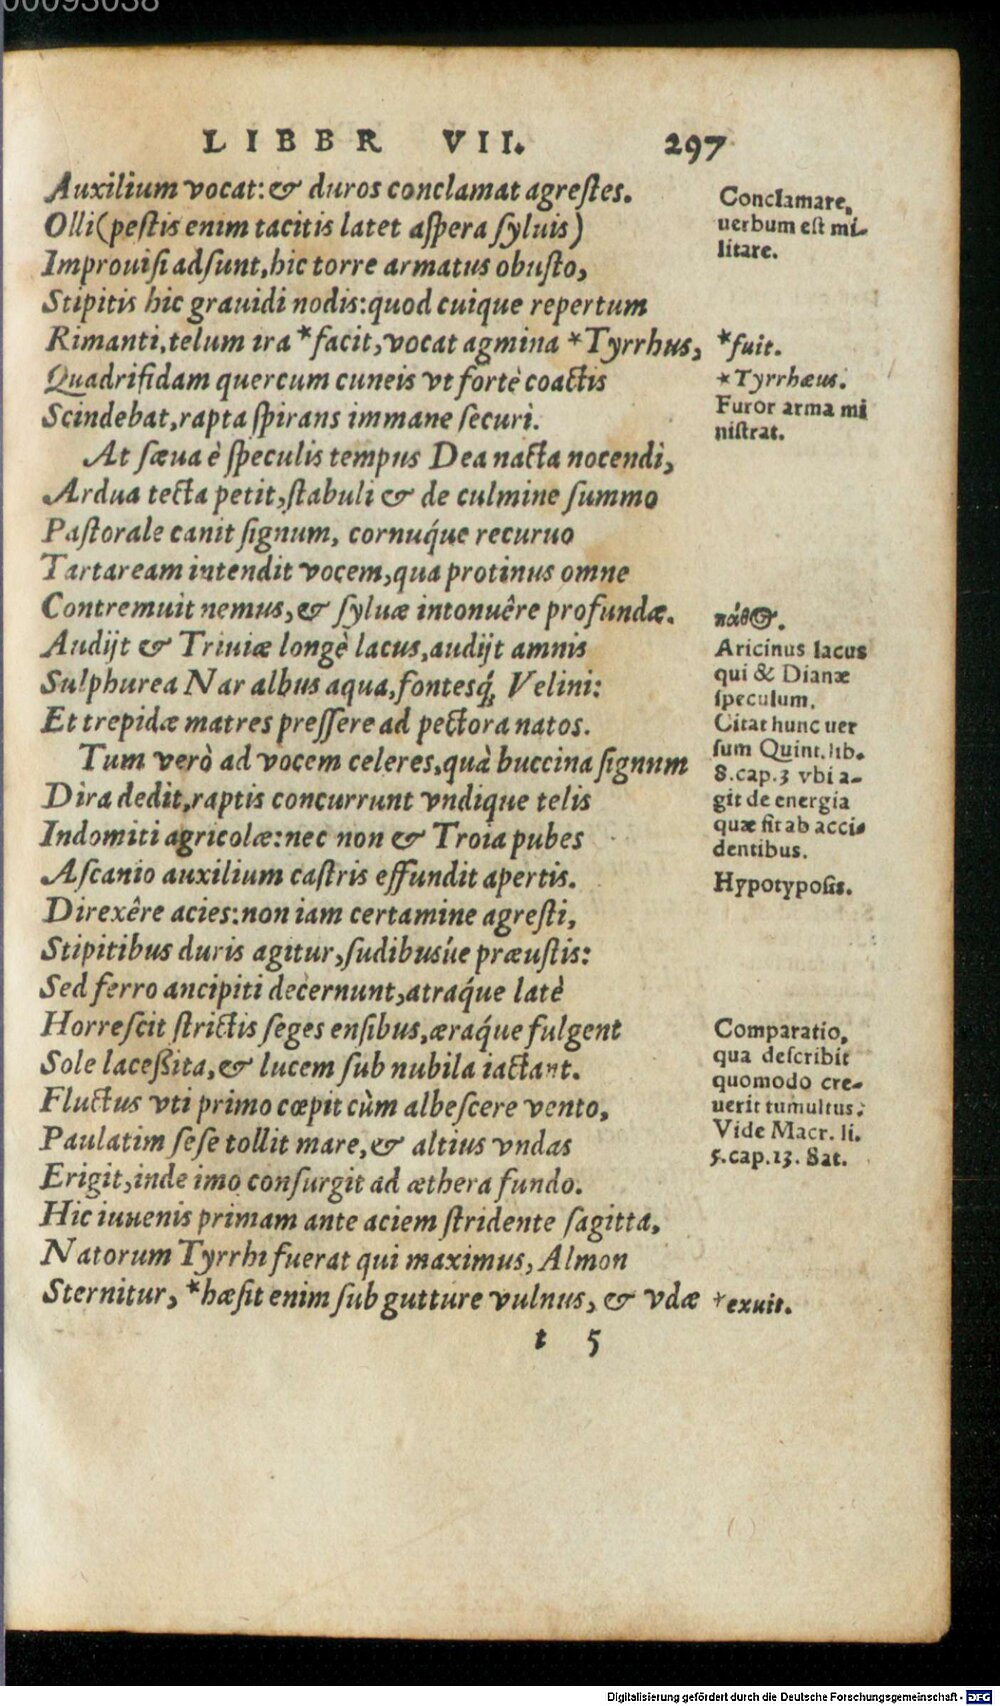 00093038
LIBER VII. 297
Auxilium vocat: & duros conclamat agreſtes.
Olli (peſtis enim tacitis latet aſpera ſyluis)
Improuiſi adſunt, hic torre armatus obuſto,
Stipitis hic grauidi nodis: quod cuique repertum
Rimanti, telum ira *facit, vocat agmina *Tyrrhus,
Quadrifidam quercum cuneis vt fortè coactis
Scindebat, rapta ſpirans immane ſecuri.
At ſæua è ſpeculis tempus Dea nacta nocendi,
Ardua tecta petit, ſtabuli & de culmine ſummo
Paſtorale canit ſignum, cornuq́ue recuruo
Tartaream intendit vocem, qua protinus omne
Contremuit nemus, & ſyluæ intonuêre profundæ.
Audijt & Triuiæ longè lacus, audijt amnis
Sulphurea Nar albus aqua, fontesq́; Velini:
Et trepidæ matres preſſere ad pectora natos.
Tum verò ad vocem celeres, quà buccina ſignum
Dira dedit, raptis concurrunt vndique telis
Indomiti agricolæ: nec non & Troia pubes
Aſcanio auxilium caſtris effundit apertis.
Direxêre acies: non iam certamine agreſti,
Stipitibus duris agitur, ſudibusúe præuſtis:
Sed ferro ancipiti decernunt, atraq́ue latè
Horreſcit ſtrictis ſeges enſibus, æraq́ue fulgent
Sole laceßita, & lucem ſub nubila iactant.
Fluctus vti primo cœpit cùm albeſcere vento,
Paulatim ſeſe tollit mare, & altius vndas
Erigit, inde imo conſurgit ad æthera fundo.
Hic iuuenis primam ante aciem ſtridente ſagitta,
Natorum Tyrrhi fuerat qui maximus, Almon
Sternitur, *hæſit enim ſub gutture vulnus, & vdæ
t 5
Conclamare,
uerbum eſt mi-
litare.
*fuit.
*Tyrrhæus.
Furor arma mi
niſtrat.
πάθος.
Aricinus lacus
qui & Dianæ
ſpeculum.
Citat hunc uer
ſum Quint. lib.
8. cap. 3 vbi a-
git de energia
quæ fit ab acci-
dentibus.
Hypotypoſis.
Comparatio,
qua deſcribit
quomodo cre-
uerit tumultus.
Vide Macr. li.
5. cap. 13. Sat.
*exuit.
Digitalisierung gefördert durch die Deutsche Forschungsgemeinschaft - DFG